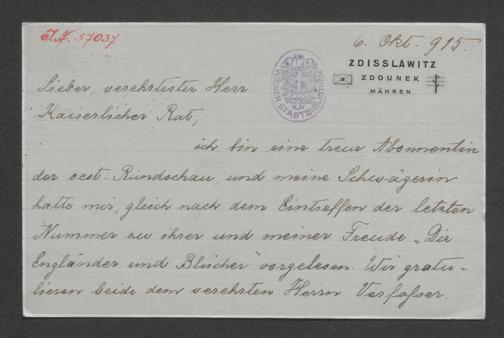 I.N. 57037
6. Okt. 915.
ZDISSLAWITZ
ZDOUNEK
MÄHREN
WIENER STADTBIBLIOTHEK
Lieber, verehrtester Herr
Kaiserlicher Rat,
ich bin eine treue Abonnentin
der oest. Rundschau, und meine Schwägerin
hatte mir, gleich nach dem Eintreffen der letzten
Nummer zu ihrer und meiner Freude „Die
Engländer und Blücher" vorgelesen. Wir gratu-
lieren beide dem verehrten Herrn Verfasser.